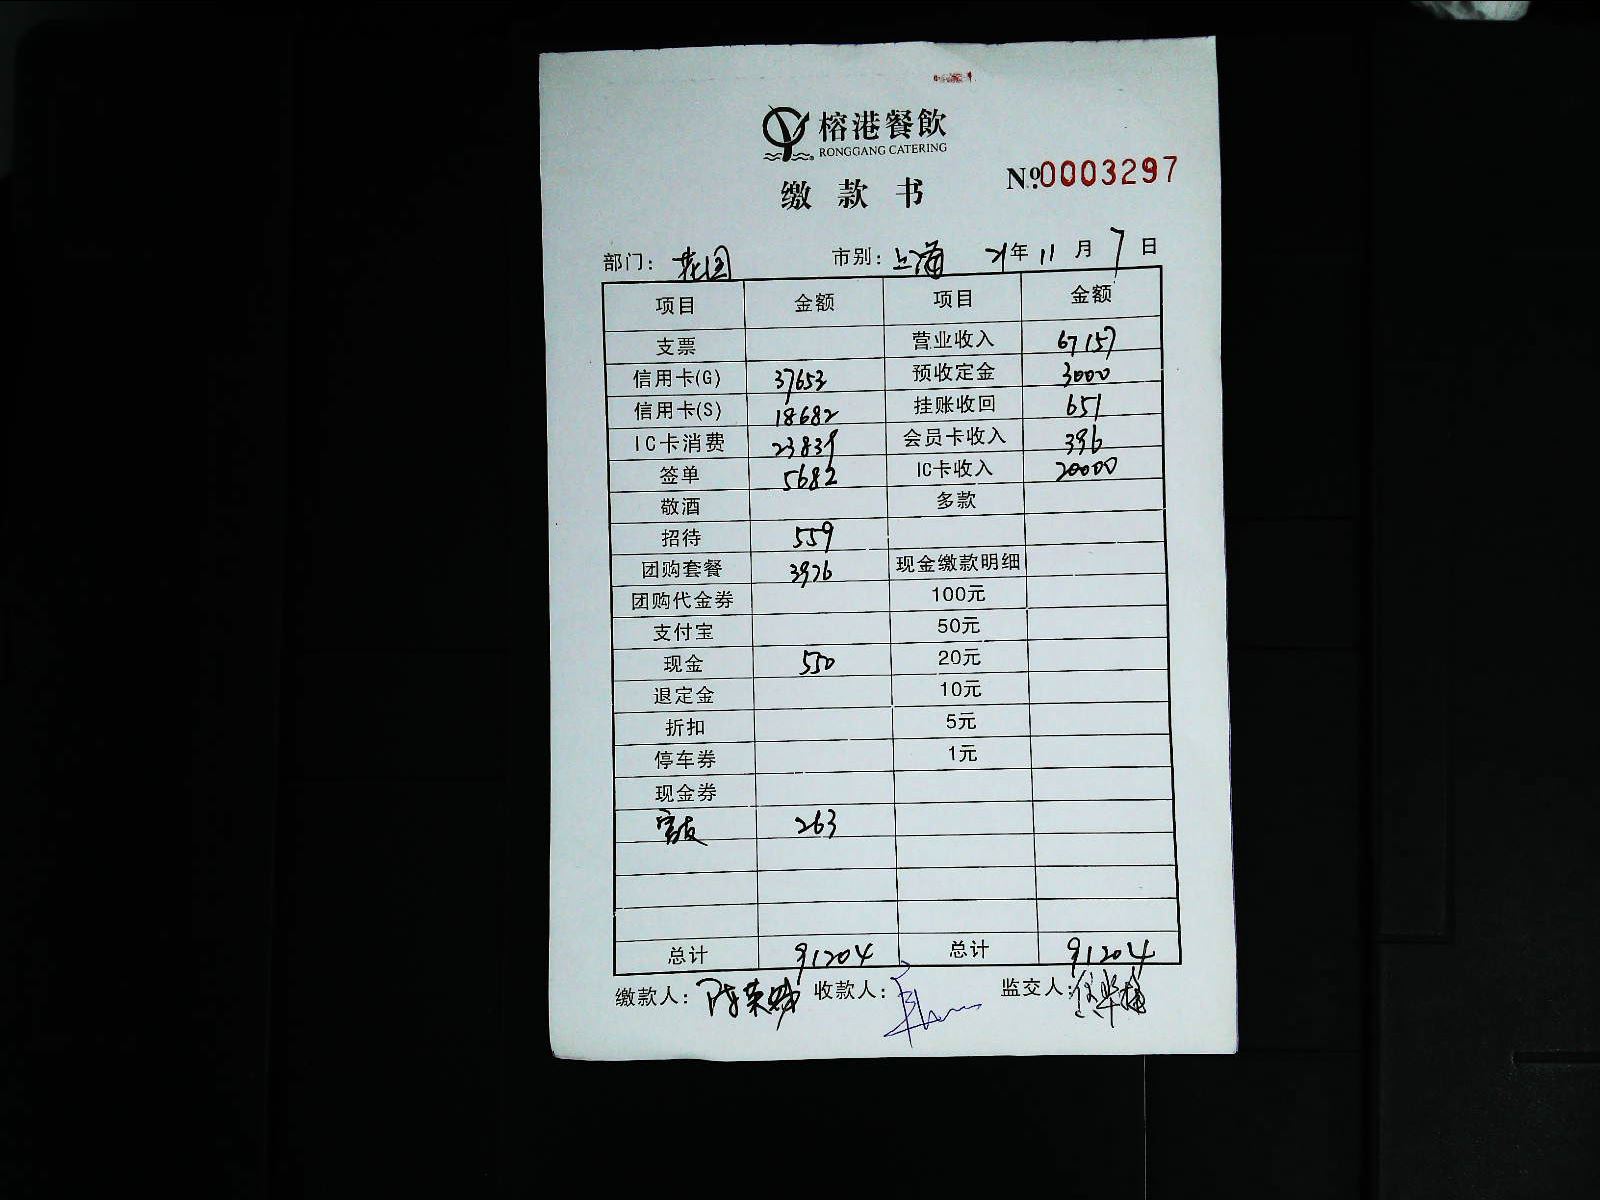 榕港餐飲
RONGGANG CATERING
缴款书
№0003297
部门：花园 市别：上海 21年11月7日
项目 金额 项目 金额
支票 营业收入 67157
信用卡(G) 37653 预收定金 3000
信用卡(S) 18682 挂账收回 651
IC卡消费 23839 会员卡收入 396
签单 5682 IC卡收入 20000
敬酒 多款
招待 559
团购套餐 3976 现金缴款明细
团购代金券 100元
支付宝 50元
现金 550 20元
退定金 10元
折扣 5元
停车券 1元
现金券
263
总计 91204 总计 91204
缴款人： 收款人： 监交人：